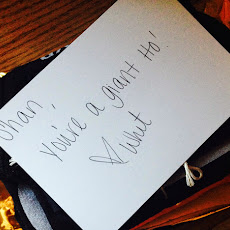 Ohan,
You're a giant Ho!
Whit